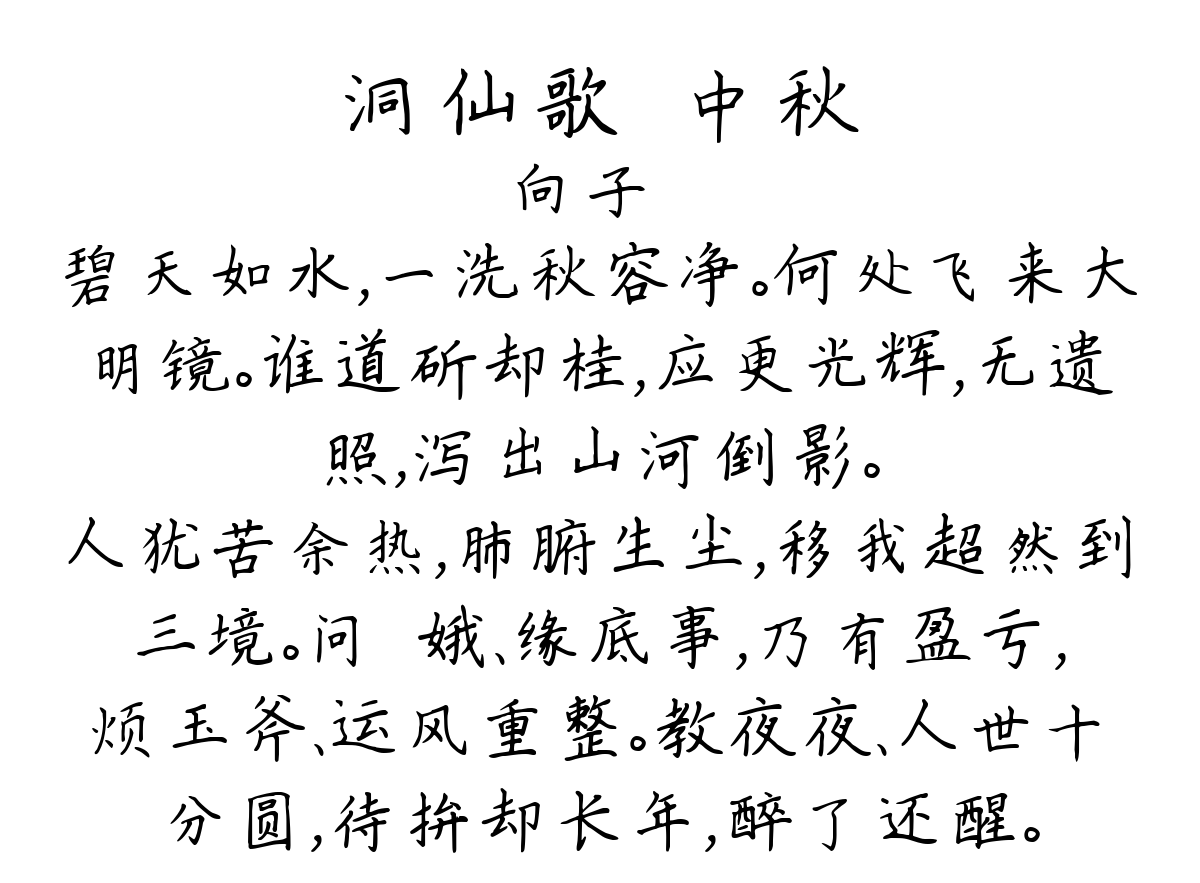 洞仙歌 中秋
向子
碧天如水,一洗秋容净。何处飞来大
明镜。谁道斫却桂,应更光辉,无遗
照,泻出山河倒影。
人犹苦余热,肺腑生尘,移我超然到
三境。问 娥、缘底事,乃有盈亏,
烦玉斧、运风重整。教夜夜、人世十
分圆,待拚却长年,醉了还醒。